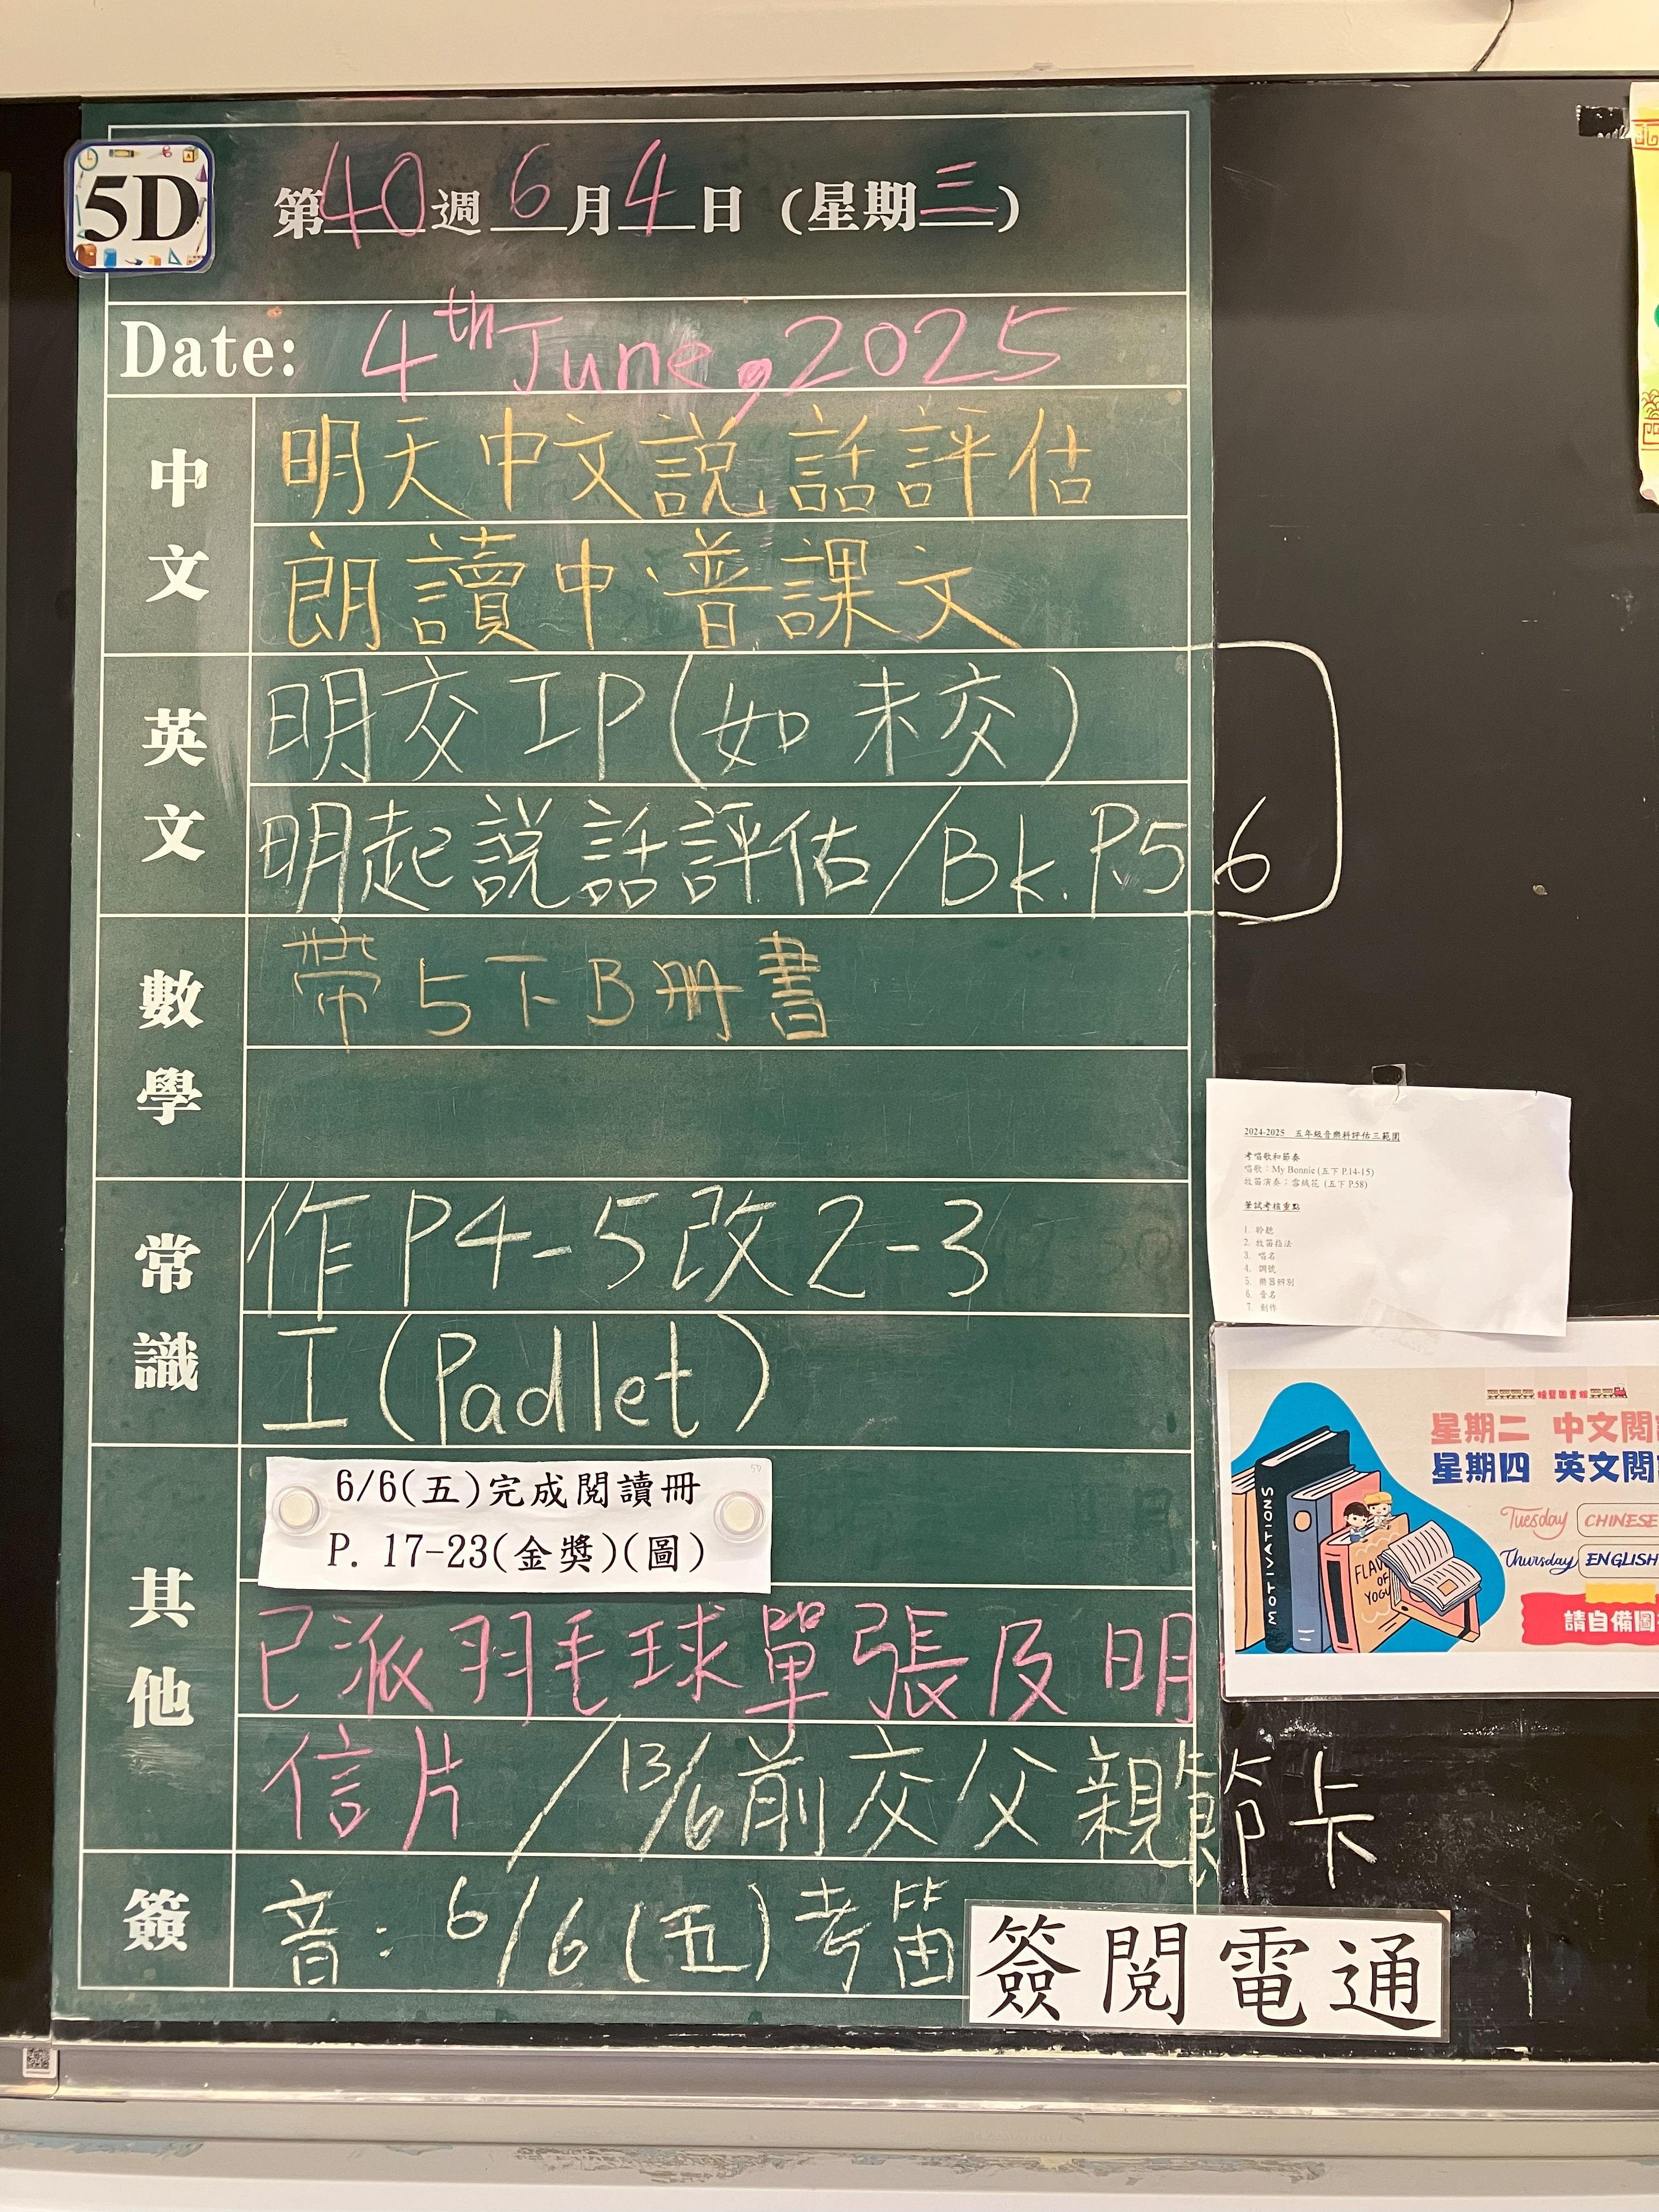 5D
第40週 6月4日 (星期三)
Date: 4th June, 2025
中文
明天中文説話評估
朗讀中、普課文
英文
明交IP(如未交)
明起説話評估/Bk.P.56
數學
帶5下B冊書
常識
作P4-5改2-3
工(Padlet)
其他
6/6(五)完成閱讀冊
P. 17-23(金獎)(圖)
已派羽毛球單張及明
信片/13/6前交父親節卡
簽
音: 6/6(五)考笛
簽閱電通
2024-2025 五年級音樂科評估三範圍
考唱歌和節奏
唱歌：My Bonnie (五下 P.14-15)
牧笛演奏：雪絨花 (五下 P.58)
筆試考核重點
1. 聆聽
2. 牧笛指法
3. 唱名
4. 調號
5. 樂器辨別
6. 音名
7. 創作
星期二 中文閱
星期四 英文閱
Tuesday CHINESE
Thursday ENGLISH
請自備圖
MOTIVATIONS
OF
YOGU